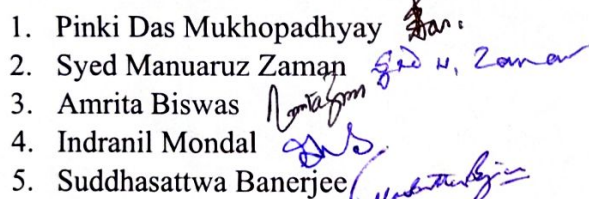 1. Pinki Das Mukhopadhyay
2. Syed Manuaruz Zaman
3. Amrita Biswas
4. Indranil Mondal
5. Suddhasattwa Banerjee